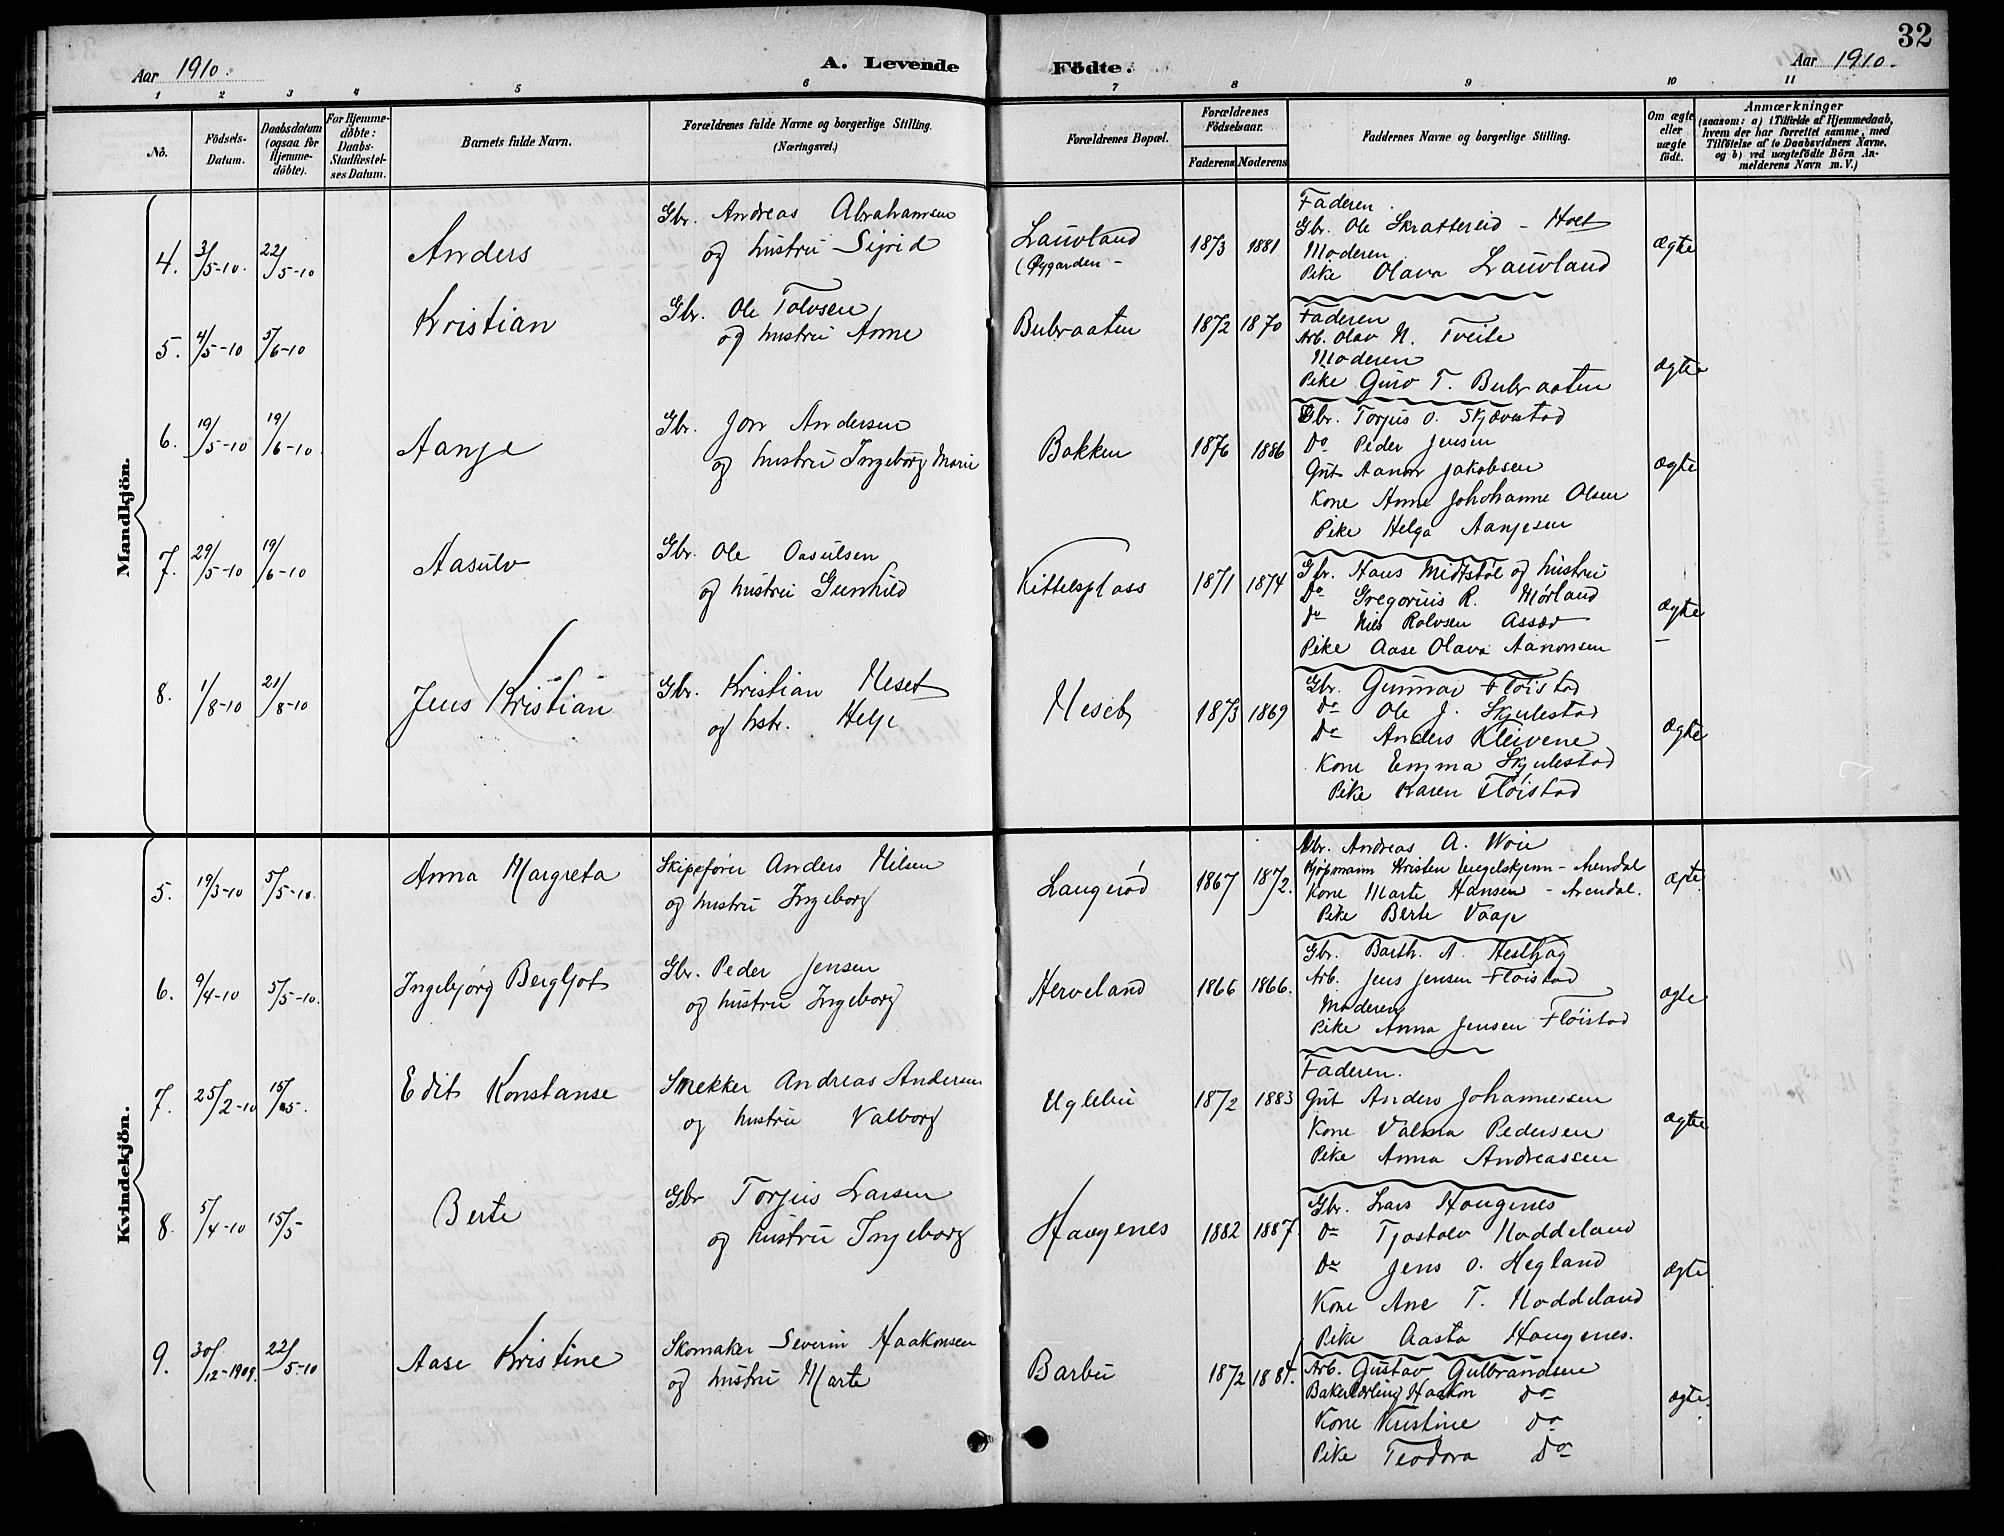 32
Aar 1910.
A. Levende Födte.
Aar 1910.
1 2 3 4 5 6 7 8 9 10 11
No.
Födsels-Datum.
Daabsdatum (ogsaa for Hjemmedöbte).
For Hjemmedöbte: Daabs-Stadfæstelses Datum.
Barnets fulde Navn.
Forældrenes fulde Navne og borgerlige Stilling.
(Næringsvei.)
Forældrenes Bopæl.
Forældrenes Födselsaar.
Faderens Moderens
Faddernes Navne og borgerlige Stilling.
Om ægte eller uægte födt.
Anmærkninger
(saasom: a) i Tilfælde af Hjemmedaab, hvem der har forrettet samme, med Tilföielse af to Daabsvidners Navne, og b) ved uægtefödte Börn Anmelderens Navn m. V.)
Mandkjön.
4. 3/5-10. 22/5-10 Anders
Gbr. Andreas Abrahamsen
og hustru Sigrid
Lauvland
(Øygarden -
1873 1881
Faderen.
Gbr. Ole Skrattereid - Holt
Moderen
Pike Olava Lauvland
ægte
5. 4/5-10 5/6-10 Kristian
Gbr. Ole Tolvsen
og hustru Anne
Bubraaten 1872 1870
Faderen
Arb. Olav N. Tveite
Moderen
Pike Guro T. Bubraaten
ægte
6. 19/5-10 19/6-10 Aanje
Gbr. Jon Andersen
og hustru Ingeborg Marie
Bakken 1876 1886
Gbr. Torjus O. Skjævestad
Do Peder Jensen
Gut Aanon Jakobsen
Kone Anne Johohanne Olsen
Pike Helga Aanjesen
ægte
7. 29/5-10 19/6-10 Aasulv
Gbr. Ole Oasulsen
og hustru Gunhild
Kittelsplass 1871 1874
Gbr. Hans Midtstøl og hustru
Do Gregorius R. Mørland
Do Nils Rolvsen Assæv
Pike Aase Olava Aanonsen
ægte
8. 1/8-10 21/8-10 Jens Kristian
Gbr. Kristian Neset
og hstr. Helje
Neset 1873 1869
Gbr. Gunnar Fløistad
Do Ole J. Skjulestad
Do Anders Kleivene
Kone Emma Skjulestad
Pike Karen Fløistad
ægte
Kvindekjön.
5. 19/3-10 5/5-10. Anna Margreta
Skipsfører Anders Nilsen
og hustru Ingeborg
Langerød 1867 1872.
Gbr. Andreas A. Woie
Kjøpmann Kristen - Arendal
Kone Marte Hansen - Arendal.
Pike Berte Vaaje
ægte
6. 9/4-10 5/5-10. Ingebjørg Bergljot
Gbr. Peder Jensen
og hustru Ingeborg
Herveland 1866 1866.
Gbr. Barth. A. Hesthag
Arb. Jens Jensen Fløistad
Moderen
Pike Anna Jensen Fløistad
ægte
7. 25/2-10 15/5-. Edit Konstanse
Snekker Andreas Andersen
og hustru Valborg
Uglebu 1872 1883
Faderen.
Gut Anders Johannesen
Kone Valma Pedersen
Pike Anna Andreassen
ægte
8. 5/4-10 15/5- Berte
Gbr Torjus Larsen
og hustru Ingeborg
Haugenes 1882 1887.
Gbr. Lars Haugenes
Do Tjostolv Noddeland
Do Jens O. Hegland
Kone Ane T. Noddeland
Pike Aasta Haugenes.
ægte
9. 30/12-1909. 22/5-10 Aase Kristine
Skomaker Severin Haakonsen
og hustru Marte
Barbu 1872 1884.
Arb. Gustav Gulbrandsen
Bakerlærling Haakon Do
Kone Kristine Do
Pike Teodora Do
ægte.